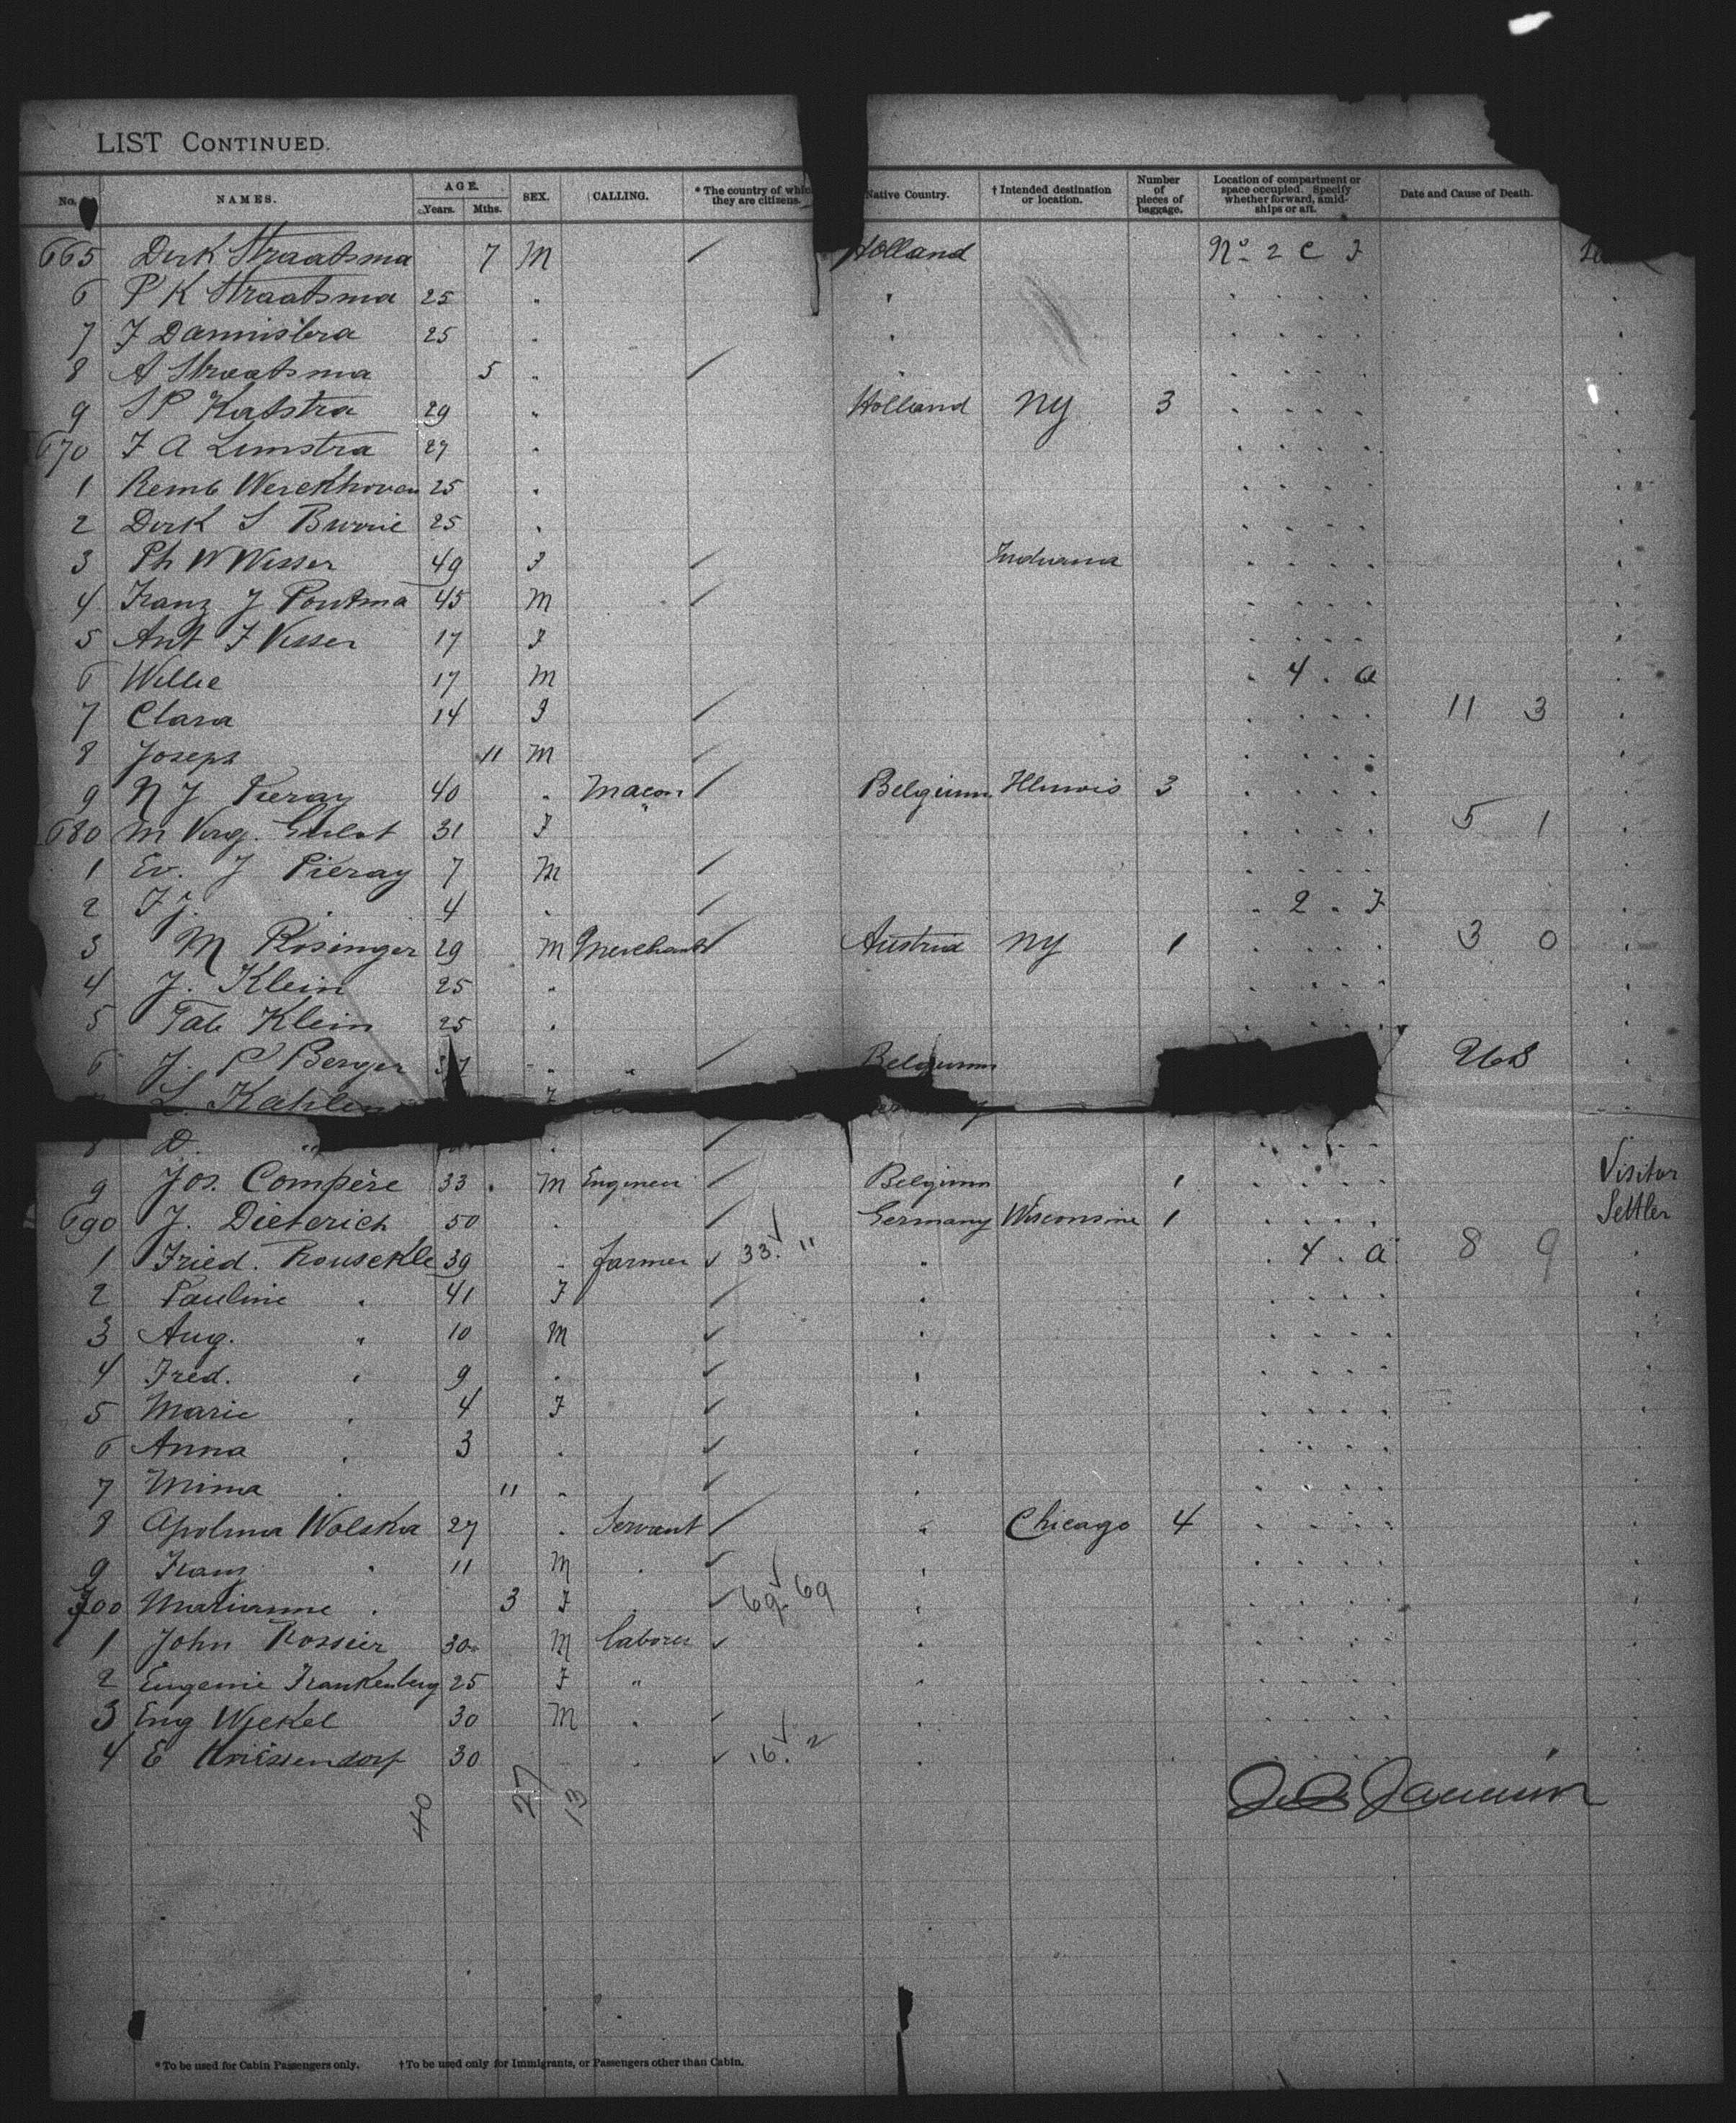 LIST CONTINUED.
No. NAMES. AGE. Years. Mths. SEX. CALLING. * The country of which they are citizens. Native Country. † Intended destination or location. Number of pieces of baggage. Location of compartment or space occupied. Specify whether forward, amidships or aft. Date and Cause of Death.
665 Dirk Straatsma 7 M Holland No 2 C F
6 P K Straatsma 25 "
7 F 25 "
8 A Straatsma 5 "
9 S P Katstra 29 " Holland NY 3
670 F A Limstra 27 "
1 Remb Werekhoven 25 "
2 Dirk S 25 "
3 Ph W Wisser 49 F Indiana
4 Franz J Pontma 45 M
5 Ant F Visser 17 F
6 Willie 17 M 4 . a
7 Clara 14 F 11 3
8 Joseph 11 M
9 N J Pieray 40 " Macon Belgium Illinois 3
680 M Virg. 31 F 5 1
1 Ev. J Pieray 7 M
2 F J. 4 " 2 . F
3 M Rosinger 29 M Merchant Austria NY 1 3 0
4 J. Klein 25 "
5 Tab Klein 25 "
6 J. P Berger 7 " " Belgium
L. Kahlen F
8 D. "
9 Jos. Compère 33 M Engineer Belgium 1 Visitor
690 J. Dieterich 50 " Germany Wisconsine 1 Settler
1 Fried. Rousekle 39 " farmer 33. " " 4 . a 8 9
2 Pauline " 41 F "
3 Aug. " 10 M "
4 Fred. " 9 " "
5 Marie " 4 F "
6 Anna " 3 " "
7 Mima " 11 " "
8 Apolina Wolska 27 " Servant " Chicago 4
9 Franz " 11 M " "
700 Marianne " 3 F " 69. 69 "
1 John Rossier 30 M laborer "
2 Eugenie Frankenberg 25 F " "
3 Eug Wickel 30 M " "
4 E Kriessendorf 30 " 16. 2 "
40 27 13
* To be used for Cabin Passengers only. † To be used only for Immigrants, or Passengers other than Cabin.